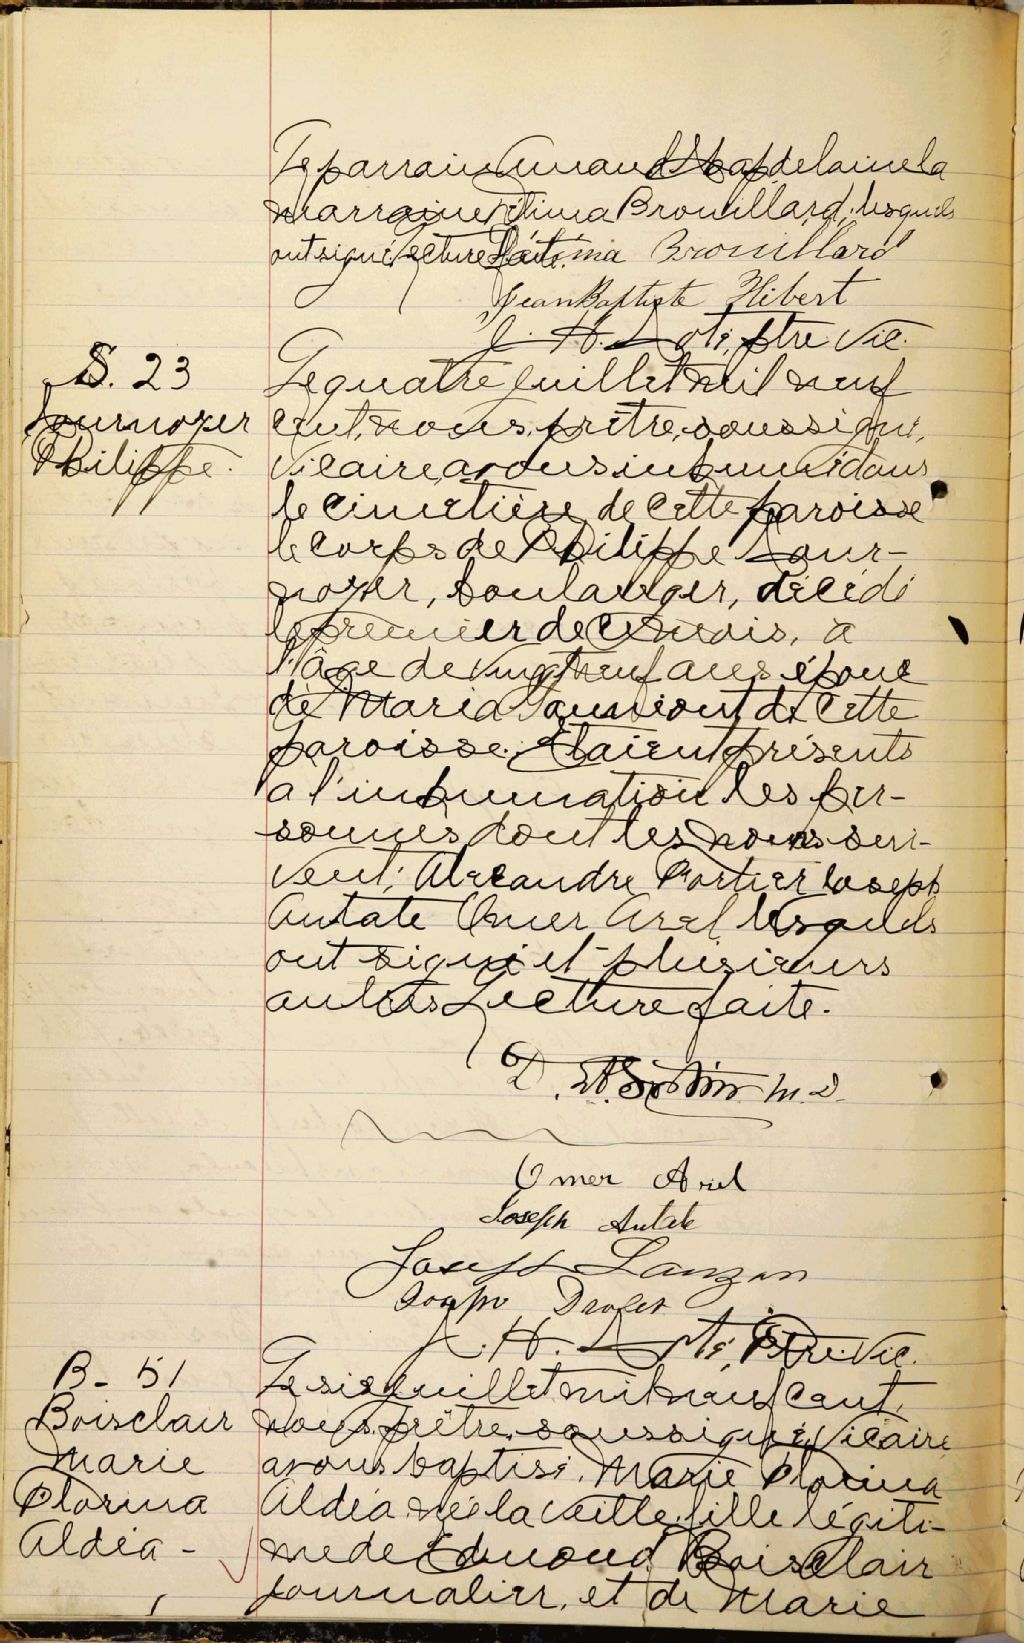 Le parrain Amand Chapdelaine la
marraine Délima Brouillard, lesquels
ont signé. Lecture faite. Délima Brouillard
Jean Baptiste Hébert
J. H. Loti, ptre Vic.
S. 23
Le quatre juillet mil neuf
Fournoyer
cent, nous, prêtre, soussigné,
Philippe.
Vicaire, avons inhumé dans
le cimetière de cette paroisse
le corps de Philippe Four-
noyer, boulanger, décédé
le premier de ce mois, à
l'âge de vingt neuf ans époux
de Maria de cette
paroisse. Etaient présents
à l'inhumation les per-
sonnes dont les noms sui-
vent; Alexandre Fortier Joseph
Autate Omer Arel lesquels
ont signé et plusieurs
autres Lecture faite.
M.D.
Omer Arel
Joseph Autate
Joseph Lanzon
Joseph Drolet
J. H. Ptre. Vic.
B - 51
Le six juillet mil neuf cent,
Boisclair
nous, prêtre, soussigné, Vicaire
Marie
avons baptisé, Marie Florina
Florina
Aldéa née la veille fille légiti-
Aldéa -
me de Edmond Boisclair
journalier, et de Marie